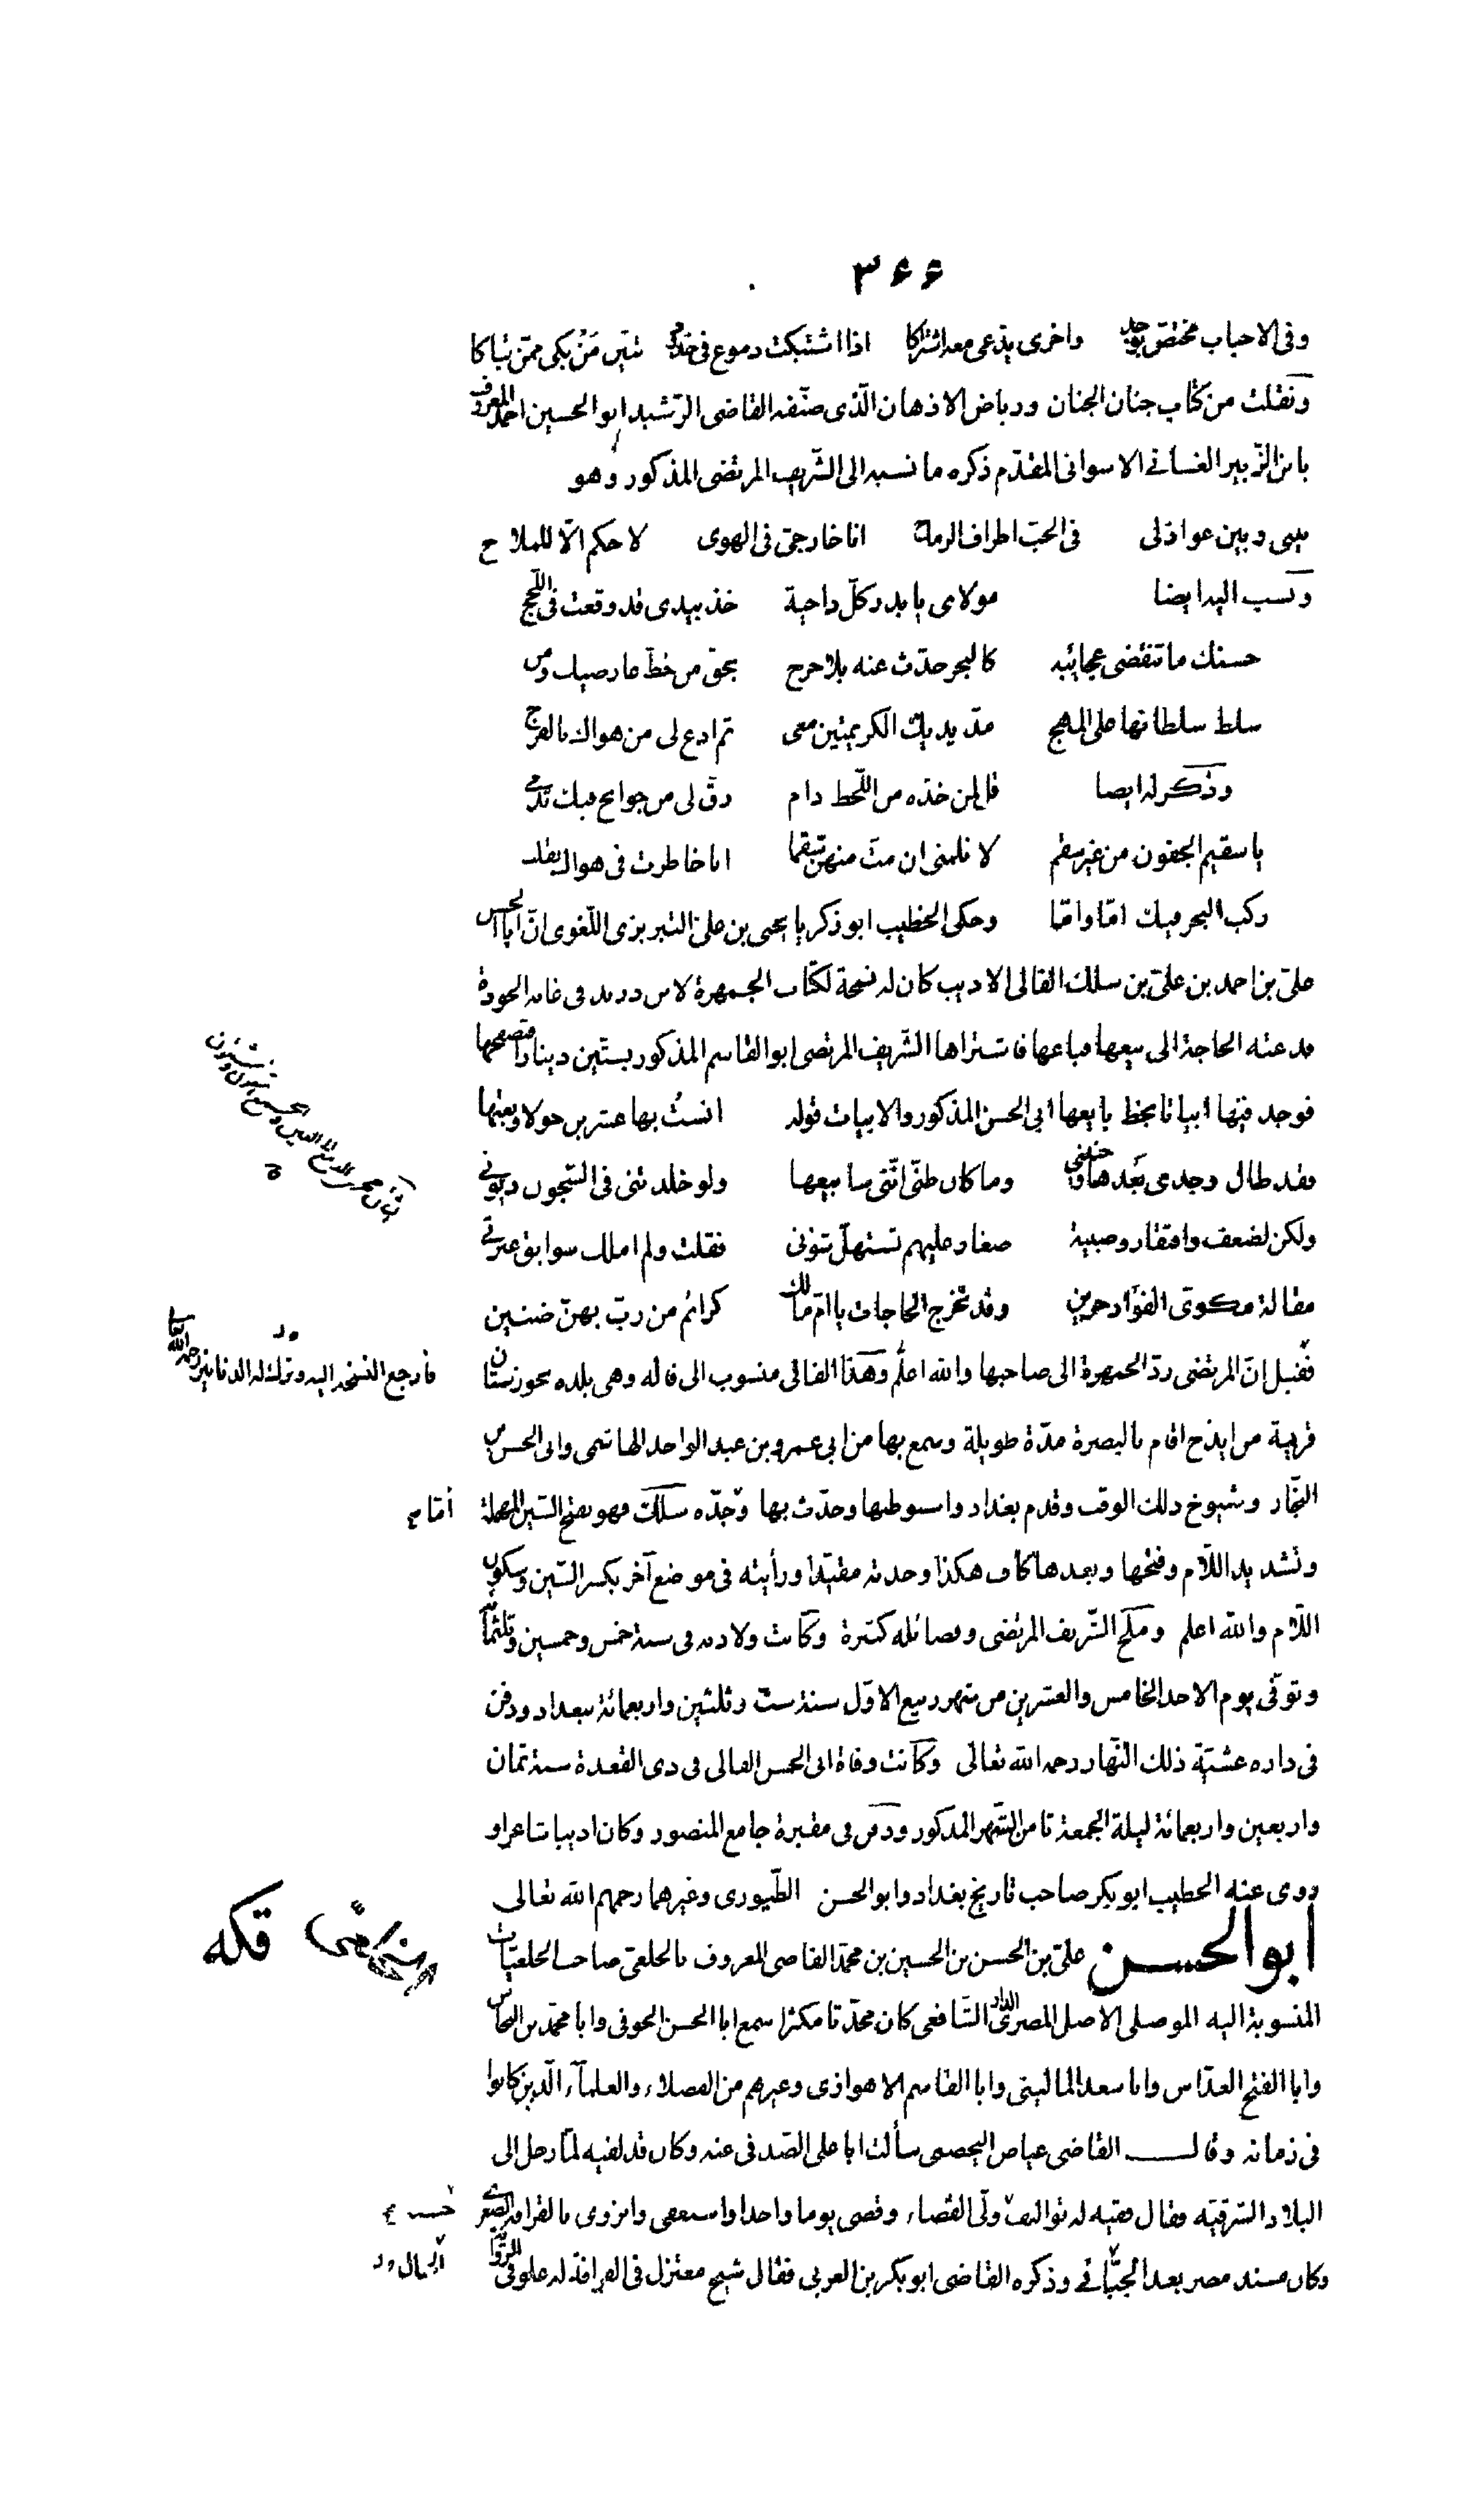 ٣٦٦
وفى الاحباب مختص بوجد واخرى يدعى معه اشتراكا اذا اشتبكت دموع فى خدود تبين من بكى ممن تباكا
ونقلت من كتاب جنان الجنان ورياض الاذهان الّذى صنّفه القاضى الرّشيد ابو الحسين احمد المعروف
بابن الزّبير الغسانى الاسوانى المقدّم ذكره ما نسبه الى الشّريف المرتضى المذكور وهو
بينى وبين عواذلى فى الحبّ اطراف الرماح انا خارجىّ فى الهوى لا حكم الّا للملاح
ونسب اليه ايضا مولاى يا بدر كلّ داجية خذ بيدى قد وقعت فى اللّجج
حسنك ما تنقضى عجائبه كالبحر حدّث عنه بلا حرج بحقّ من خطّ عارضيك ومن
سلط سلطانها على المهج مدّ يديك الكريمتين معى ثم ادع لى من هواك بالفرج
وذكر له ايضا قل لمن خدّه من اللّحظ دام رقّ لى من جوانح فيك تدمى
يا سقيم الجفون من غير سقم لا تلمنى ان متّ منهن سقما انا خاطرت فى هواك بقلب
ركب البحر فيك امّا وامّا وحكى الخطيب ابو زكريا يحيى بن على التبريزى اللّغوى انّ ابا الحسن
علىّ بن احمد بن علىّ بن سلك الفالى الاديب كان له نسخة لكتاب الجمهرة لابن دريد فى غاية الجودة
فدعته الحاجة الى بيعها فباعها فاشتراها الشّريف المرتضى ابو القاسم المذكور بستّين دينارا فتصفحها
فوجد فيها ابياتا بخطّ بايعها ابى الحسن المذكور والابيات قوله انستُ بها عشرين حولا وبعتها
فقد طال وجدى بعدها وحنينى وما كان ظنّى انّنى سابيعها ولو خلدتنى فى السّجون ديونى
ولكن لضعف وافتقار وصبية صغار عليهم تستهلّ شؤنى فقلت ولم املك سوابق عبرتى
مقالة مكوىّ الفؤاد حزين وقد تخرج الحاجات يا امّ مالك كرائم من ربّ بهنّ ضنين
فقيل انّ المرتضى ردّ الجمهرة الى صاحبها والله اعلم وهذا الفالى منسوب الى فاله وهى بلده بخوزستان
فارجع النسخه اليه وترك له الدنانير رحمه الله تعالى
قريبة من ايذج اقام بالبصرة مدّة طويلة وسمع بها من ابى عمرو بن عبد الواحد الهاشمى وابى الحسن بن
النجّار وشيوخ ذلك الوقت وقدم بغداد واستوطنها وحدّث بها وجدّه سلك فهو بفتح السّين المهملة
وتشديد اللّام وفتحها وبعدها كاف هكذا وجدته مقيّدا ورأيته فى موضع آخر بكسر السّين وسكون
اللّام والله اعلم وملح الشّريف المرتضى وفضائله كثيرة وكانت ولادته فى سنة خمس وخمسين وثلثمائة
وتوفّى يوم الاحد الخامس والعشرين من شهر ربيع الاوّل سنة ستّ وثلثين واربعمائة ببغداد ودفن
فى داره عشيّة ذلك النّهار رحمه الله تعالى وكانت وفاة ابى الحسن الفالى فى ذى القعدة سنة ثمان
واربعين واربعمائة ليلة الجمعة ثامن الشّهر المذكور ودفن فى مقبرة جامع المنصور وكان اديبا شاعرا و
روى عنه الخطيب ابو بكر صاحب تاريخ بغداد وابو الحسن الطّيورى وغيرهما رحمهم الله تعالى
ابو الحسن علىّ بن الحسن بن الحسين بن محمّد القاضى المعروف بالخلعىّ صاحب الخلعيّات
المنسوبة اليه الموصلى الاصل المصرى الدار الشّافعى كان محدّثا مكثرا سمع ابا الحسن الحوفى وابا محمّد بن النحاس
وابا الفتح العدّاس وابا سعد المالينى وابا القاسم الاهوازى وغيرهم من الفضلاء والعلمآء الّذين كانوا
فى زمانه وقال القاضى عياض اليحصبى سألت ابا على الصّدفى عنه وكان قد لقيه لمّا رحل الى
البلاد الشرقيّه فقال فقيه له تواليف ولّى القضاء وقضى يوما واحدا واستعفى وانزوى بالقرافة الصغرى
وكان مسند مصر بعد الحبّال وذكره القاضى ابو بكر بن العربى فقال شيخ معتزل فى القرافة له علو فى الرّواية